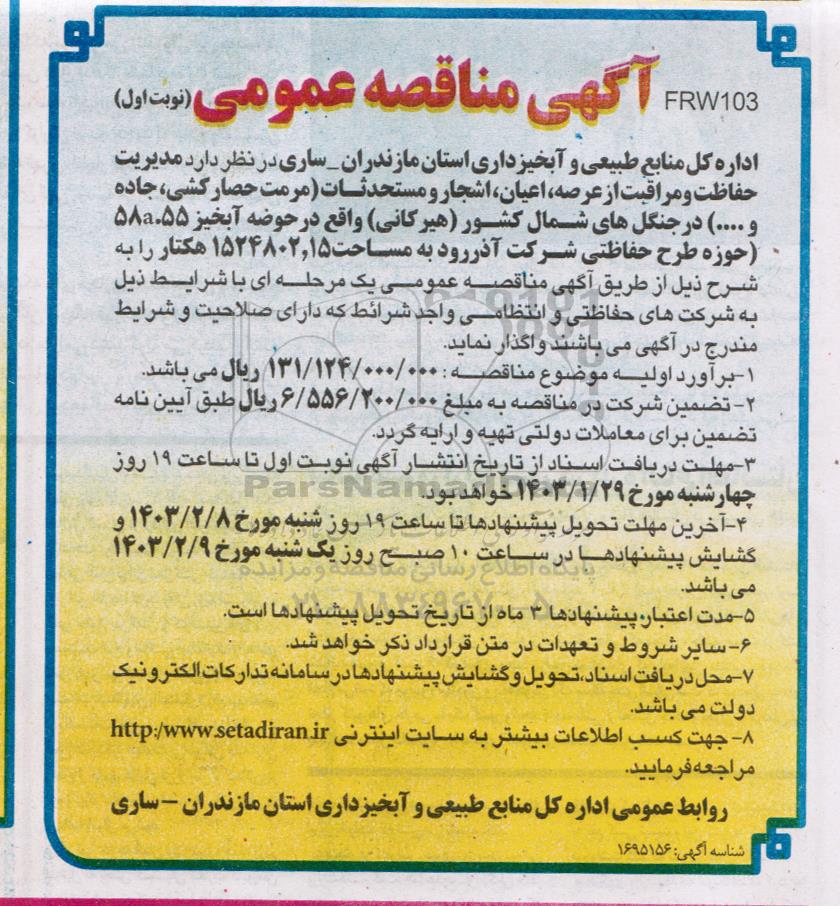 FRW103 آگهی مناقصه عمومی (نوبت اول)
اداره کل منابع طبیعی و آبخیزداری استان مازندران _ساری در نظر دارد مدیریت
حفاظت ومراقبت از عرصه، اعیان، اشجار و مستحدثات (مرمت حصارکشی، جاده
و ....) در جنگل های شمال کشور (هیرکانی) واقع در حوضه آبخیز ۵۵.۵۸a
(حوزه طرح حفاظتی شرکت آذررود به مساحت۱۵۲۴۸۰۲٫۱۵ هکتار را به
شرح ذیل از طریق آگهی مناقصه عمومی یک مرحله ای با شرایط ذیل
به شرکت های حفاظتی و انتظامی واجد شرائط که دارای صلاحیت و شرایط
مندرج در آگهی می باشند واگذار نماید.
۱-برآورد اولیه موضوع مناقصه : ۱۳۱/۱۲۴/۰۰۰/۰۰۰ ریال می باشد.
۲- تضمین شرکت در مناقصه به مبلغ ۶/۵۵۶/۲۰۰/۰۰۰ ریال طبق آیین نامه
تضمین برای معاملات دولتی تهیه و ارایه گردد.
۳-مهلت دریافت اسناد از تاریخ انتشار آگهی نوبت اول تا ساعت ۱۹ روز
چهارشنبه مورخ ۱۴۰۳/۱/۲۹ خواهد بود.
۴-آخرین مهلت تحویل پیشنهادها تا ساعت ۱۹ روز شنبه مورخ ۱۴۰۳/۲/۸ و
گشایش پیشنهادها در ساعت ۱۰ صبح روز یک شنبه مورخ ۱۴۰۳/۲/۹
می باشد.
۵-مدت اعتبار پیشنهادها ۳ ماه از تاریخ تحویل پیشنهادها است.
۶- سایر شروط و تعهدات در متن قرارداد ذکر خواهد شد.
۷-محل دریافت اسناد،تحویل و گشایش پیشنهادها در سامانه تدارکات الکترونیک
دولت می باشد.
۸- جهت کسب اطلاعات بیشتر به سایت اینترنی http:/www.setadiran.ir
مراجعه فرمایید.
روابط عمومی اداره کل منابع طبیعی و آبخیزداری استان مازندران – ساری
شناسه آگهی: ۱۶۹۵۱۵۶
ParsNamadData
پایگاه اطلاع رسانی مناقصه و مزایده
۰۲۱-۸۸۳۴۹۶۷۰-۵